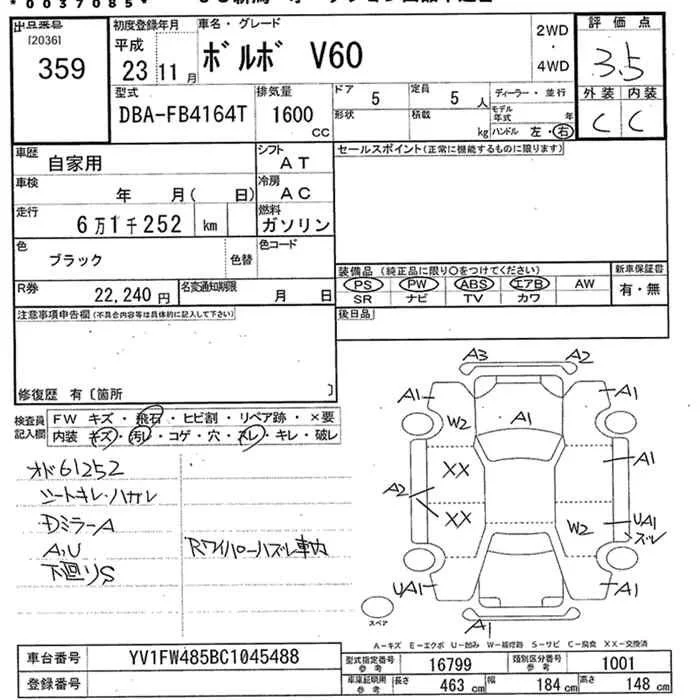 *0037085*
出品番号
[2036]
359
初度登録年月
平成
23年11月
車名・グレード
ボルボ V60
2WD
・
4WD
評価点
3.5
外装 内装
C C
型式
DBA-FB4164T
排気量
1600
CC
ドア
5
定員
5人
ディーラー・並行
形状
積載
kg
モデル年式 年
ハンドル 左・右
車歴
自家用
シフト
AT
セールスポイント(正常に機能するものに限ります)
車検
年 月( 日)
冷房
AC
走行
6万1千252 km
燃料
ガソリン
色
ブラック
色替
色コード
装備品 (純正品に限り○をつけてください)
新車保証書
PS PW ABS エアB AW
有・無
SR ナビ TV カワ
R券
22,240円
名変通知期限
月 日
注意事項申告欄(不具合内容等は具体的に記入して下さい)
後日品
修復歴 有〔箇所 〕
検査員記入欄
FW キズ・飛石・ヒビ割・リペア跡・×要
内装 キズ・汚レ・コゲ・穴・スレ・キレ・破レ
オド61252
シートキレ・ハガレ
DミラーA
A,U
下廻りS
Rワイパーハズレ車内
A3 A2
A1 A1
W2 A1
XX A1
A2
XX W2 UA1
ズレ
UA1 A1
A1
スペア
A-キズ E-エクボ U-凹み W-補修跡 S-サビ C-腐食 XX-交換済
車台番号
YV1FW485BC1045488
型式指定番号
参考
16799
類別区分番号
参考
1001
登録番号
車庫証明用
参考
長さ 463 cm
幅 184 cm
高さ 148 cm